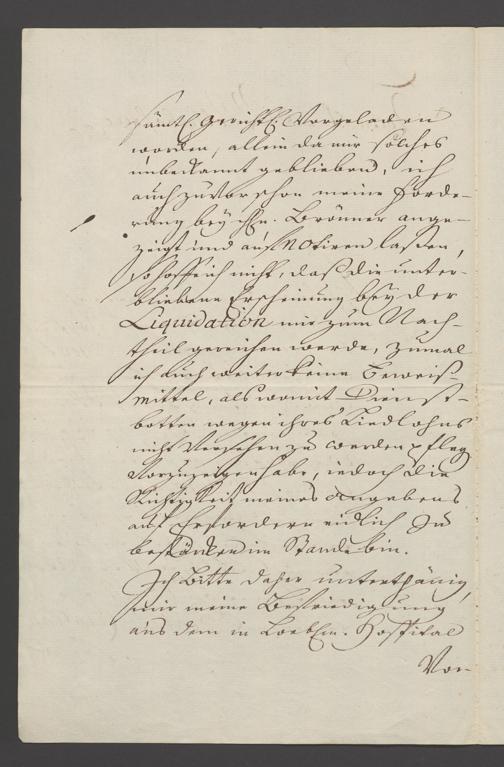 sämtl. gerichtl. Vorgeladen
worden, allein da mir solches
unbekannt geblieben, ich
auch zuvor schon meine Forde-
rung bey Hn. Brönner ange-
zeigt und auf Notiren laßen,
so hoffe ich nicht, daß die unter-
bliebene Erscheinung bey der
Liquidation mir zum Nach-
theil gereichen werde, zumal
ich auch weiter keine Beweiß-
mittel, als womit Dienst-
botten wegen ihres Liedlohns
nicht Versehen zu werden pfleg
Vorzuzeigen habe, iedoch die
Richtigkeit meines Angebens
auf Erfordern eidlich zu
bestärken im Stande bin.
Ich Bitte daher unterthänig,
mir meine Befriedigung
aus dem in Hospital
Vor-